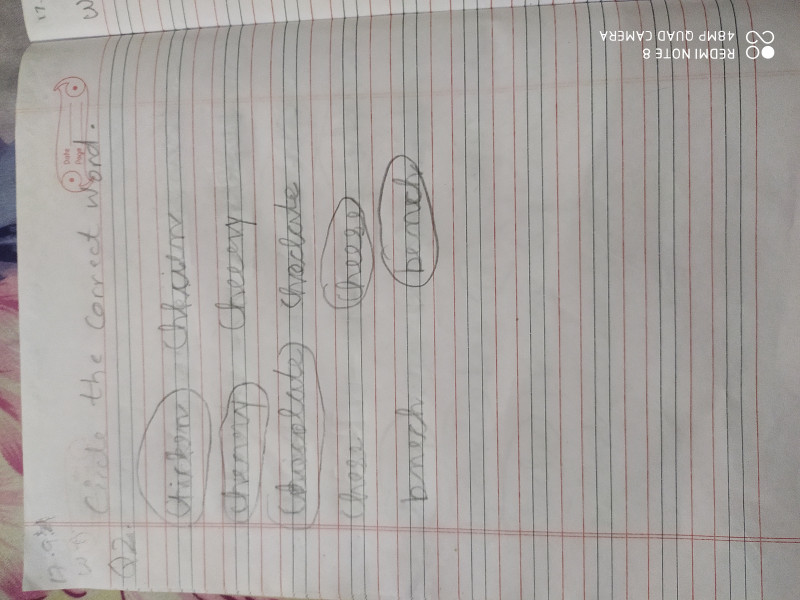 Q2. Circle the correct word.
Date
Page
chicken
cherry cheery
chocolate choclate
cheese
bnech bench
REDMI NOTE 8
48MP QUAD CAMERA